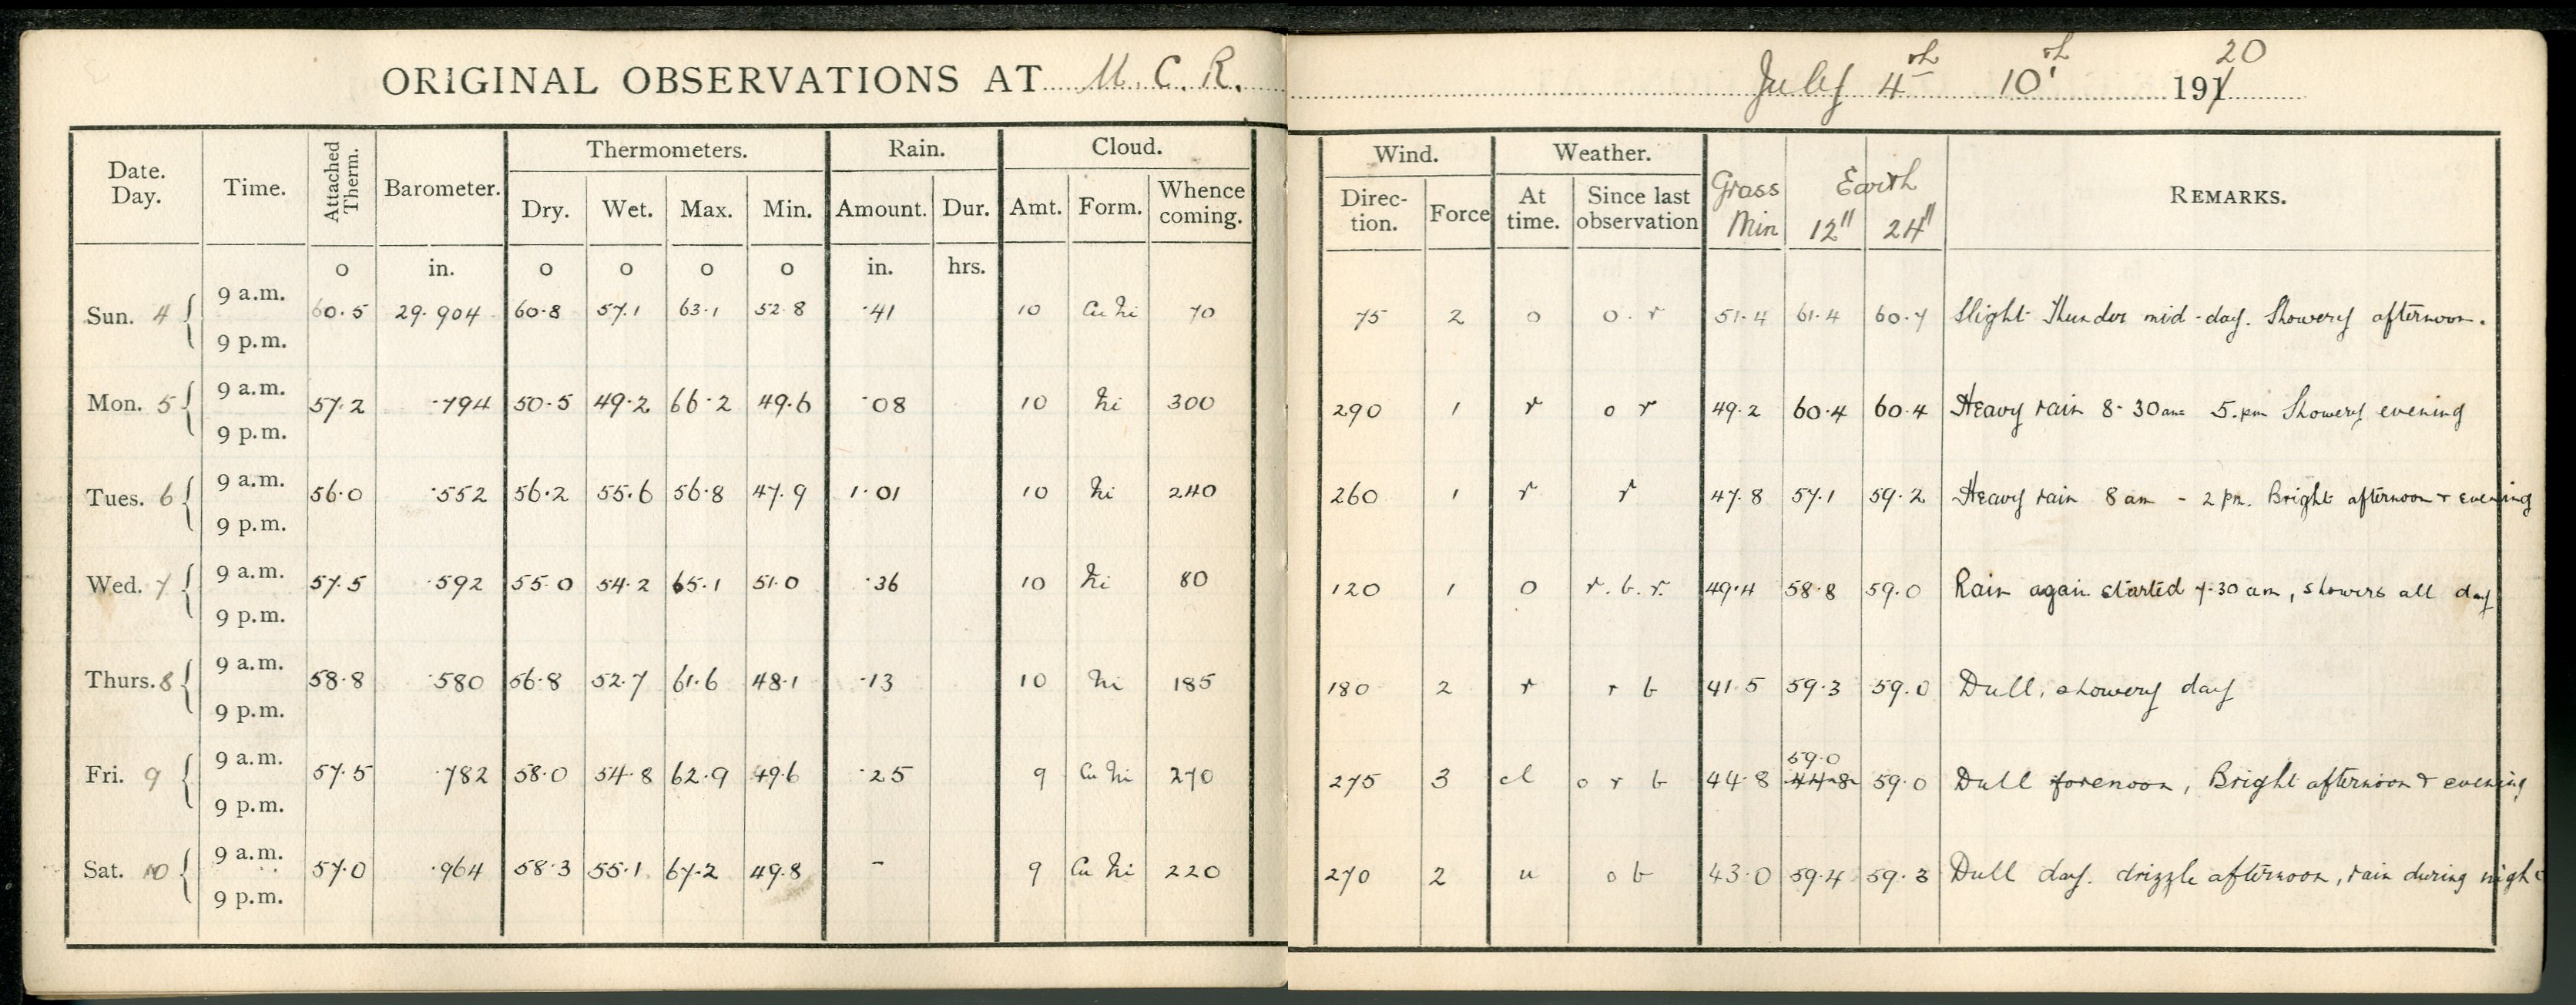 ORIGINAL OBSERVATIONS AT M. C. R. July 4th 10th 1920
Date. Day. Time. Attached Therm. Barometer. Thermometers. Rain. Cloud. Wind. Weather. Grass Min Earth REMARKS.
Dry. Wet. Max. Min. Amount. Dur. Amt. Form. Whence coming. Direc-tion. Force At time. Since last observation 12" 24"
o in. o o o o in. hrs.
Sun. 4 9 a.m. 60.5 29.904 60.8 57.1 63.1 52.8 .41 10 Cu Ni 70 75 2 o o. r 51.4 61.4 60.7 Slight Thunder mid-day. Showery afternoon.
9 p.m.
Mon. 5 9 a.m. 57.2 .794 50.5 49.2 66.2 49.6 .08 10 Ni 300 290 1 r o r 49.2 60.4 60.4 Heavy rain 8-30am 5.pm Showery evening
9 p.m.
Tues. 6 9 a.m. 56.0 .552 56.2 55.6 56.8 47.9 1.01 10 Ni 240 260 1 r r 47.8 57.1 59.2 Heavy rain 8 am - 2 pm. Bright afternoon + evening
9 p.m.
Wed. 7 9 a.m. 57.5 .592 55.0 54.2 65.1 51.0 .36 10 Ni 80 120 1 o r. b. r. 49.4 58.8 59.0 Rain again started 7-30 am, showers all day
9 p.m.
Thurs. 8 9 a.m. 58.8 .580 56.8 52.7 61.6 48.1 .13 10 Ni 185 180 2 r r b 41.5 59.3 59.0 Dull, showery day
9 p.m.
Fri. 9 9 a.m. 57.5 .782 58.0 54.8 62.9 49.6 .25 9 Cu Ni 270 275 3 cl o r b 44.8 59.0 44.8 59.0 Dull forenoon, Bright afternoon + evening
9 p.m.
Sat. 10 9 a.m. 57.0 .964 58.3 55.1 67.2 49.8 - 9 Cu Ni 220 270 2 u o b 43.0 59.4 59.3 Dull day. drizzle afternoon, rain during night
9 p.m.